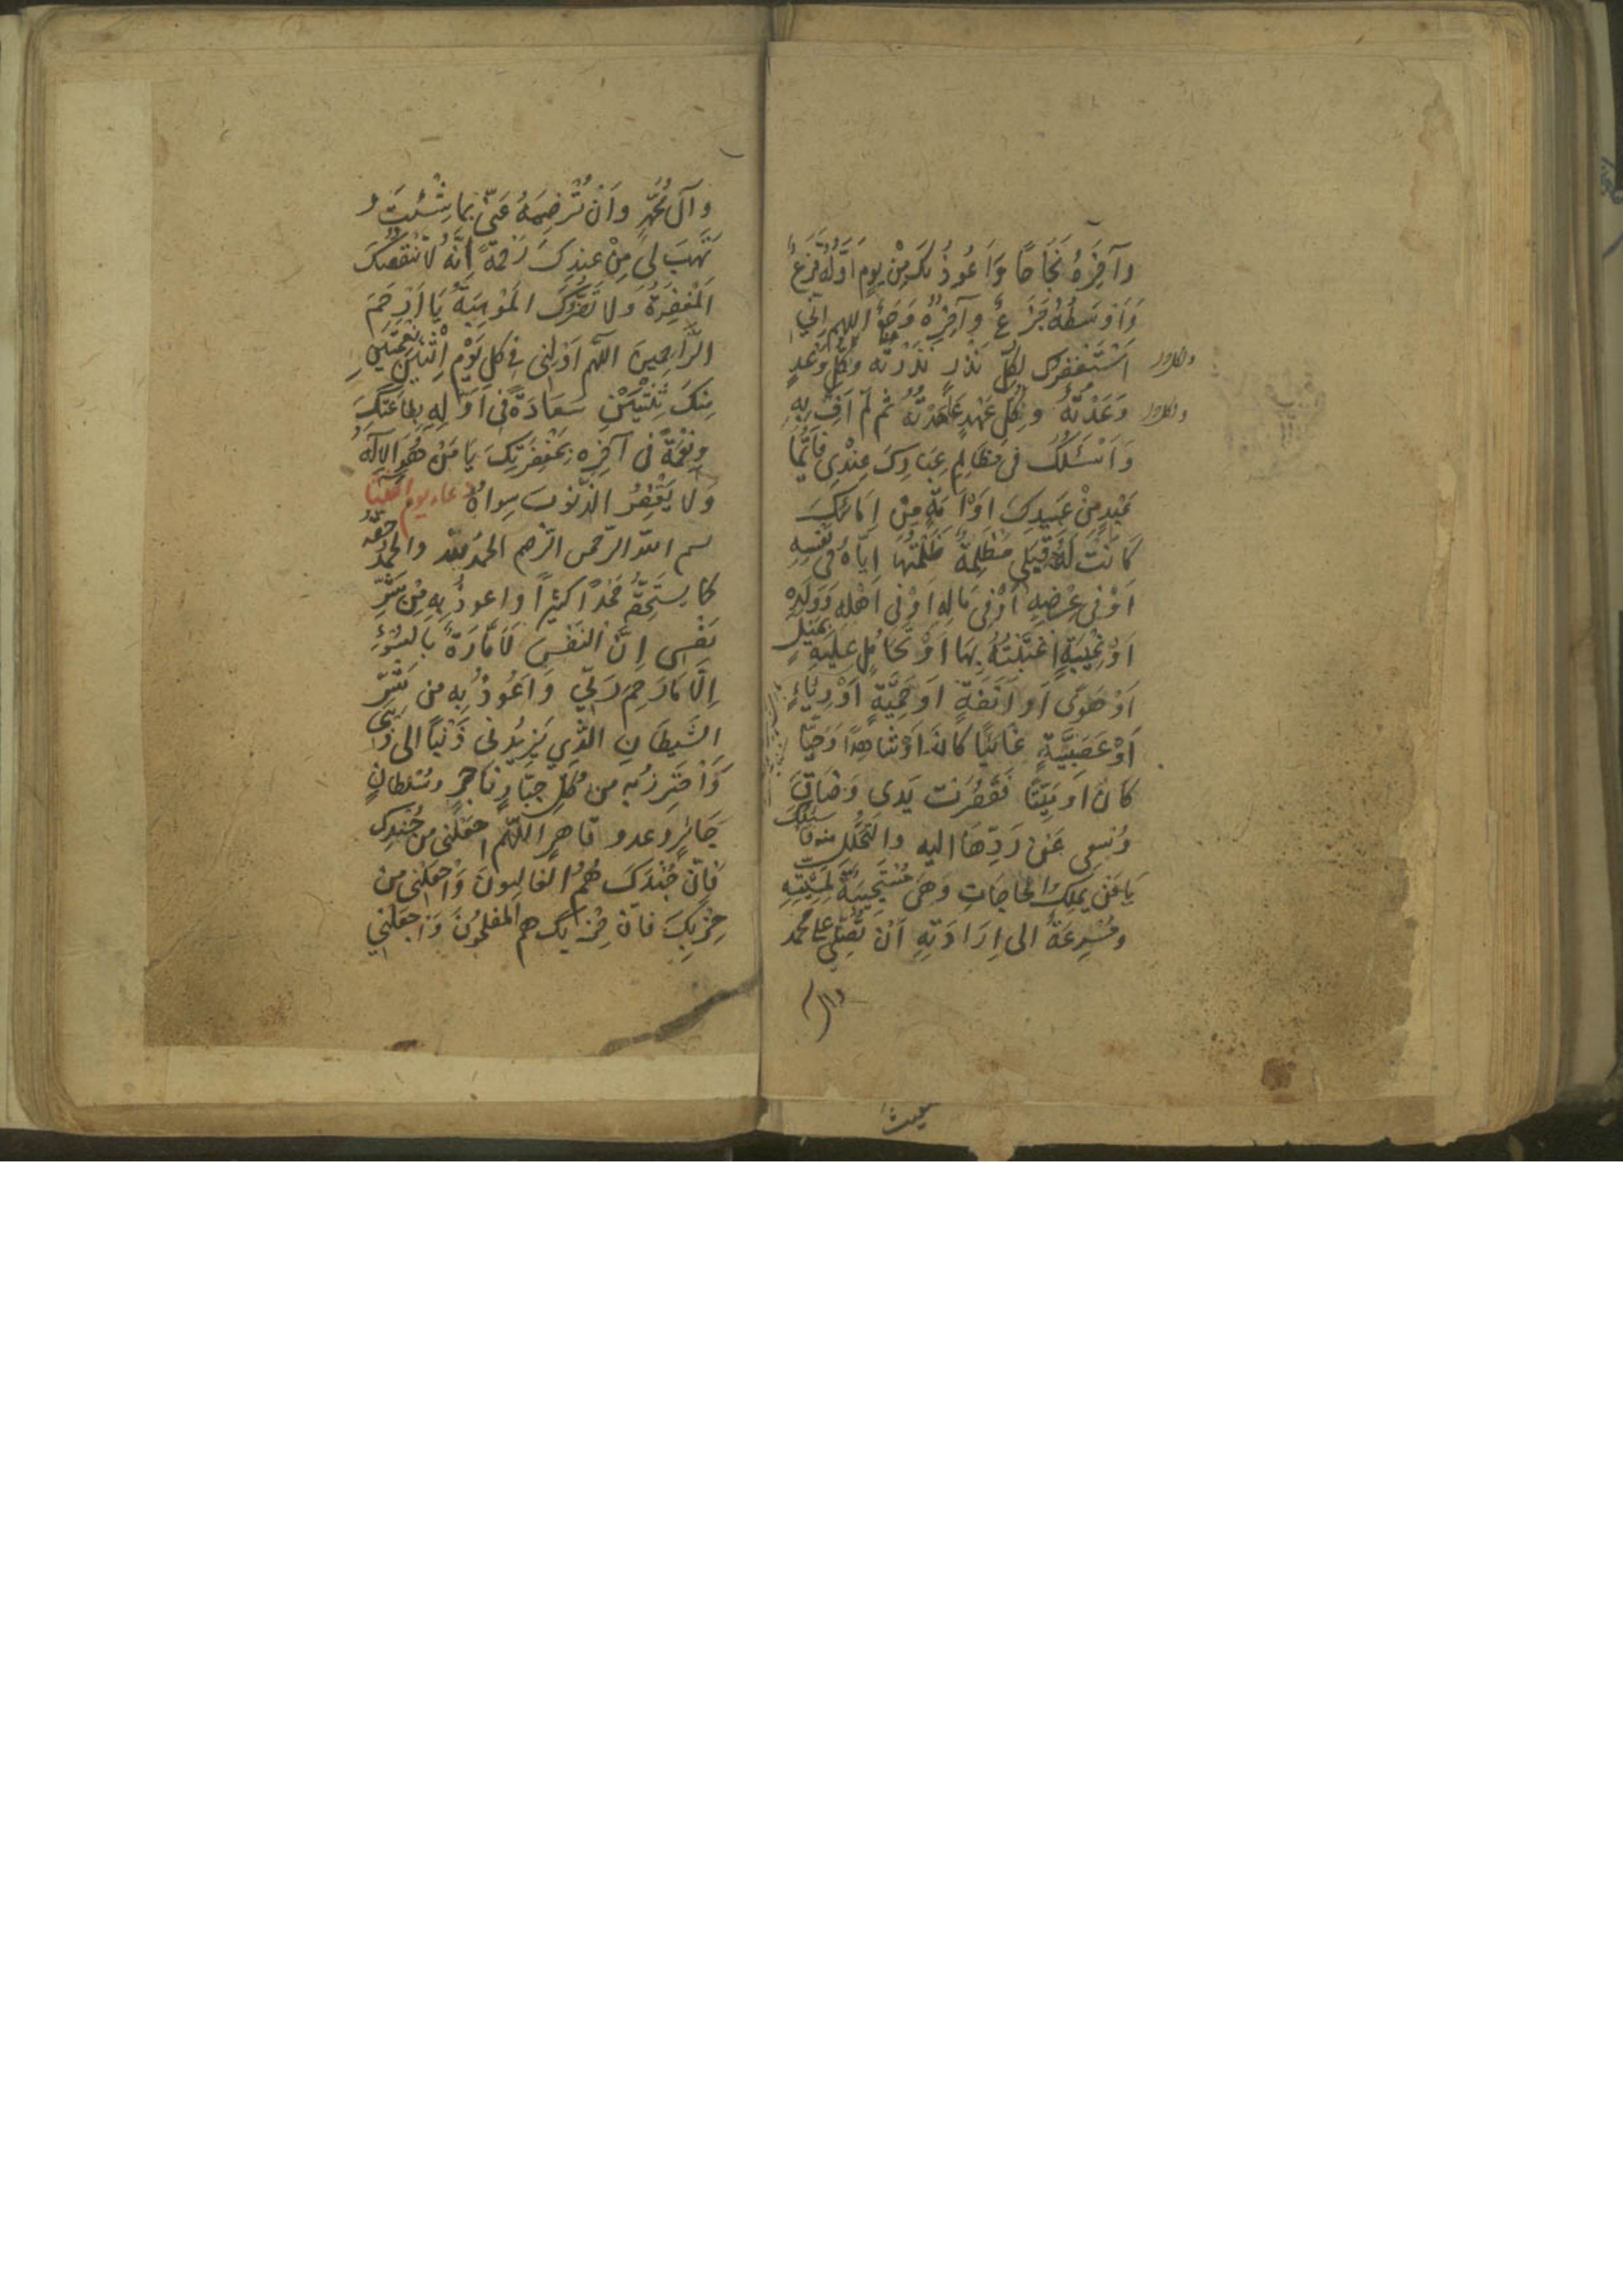 وَآخِرَهُ نَجَاحًا وَاَعُوذُ بِكَ مِنْ يَومٍ اَوَّلُهُ فَزَعٌ
وَاَوْسَطُهُ جَزَعٌ وَآخِرُهُ وَجَعٌ اللهم اِنّي
اَسْتَغْفِرُكَ لِكُلِّ نَذْرٍ نَذَرْتُهُ وَكُلِّ وَعْدٍ
وَعَدْتُهُ وَكُلِّ عَهْدٍ عَاهَدْتُهُ ثُمَّ لَمْ اَفِ بِهِ
وَاَسْئَلُكَ فى مَظَالِمِ عِبَادِكَ عِنْدِى فَاَيُّمَا
عَبْدٍ مِنْ عَبِيدِكَ اَوْ اَمَةٍ مِنْ اِمَائِكَ
كَانَتْ لَهُ قِبَلى مَظْلِمَةٌ ظَلَمْتُهَا اِيَّاهُ فى نَفْسِهِ
اَوْ فى عِرْضِهِ اَوْ فى مَالِهِ اَوْ فى اَهْلِهِ وَوَلَدِهِ
اَوْ غِيْبَةٍ اغْتَبْتُهُ بِهَا اَوْ تَحَامُلٍ عَلَيهِ بِمَيْلٍ
اَوْ هَوًى اَو اَنَفَةٍ اَو حَمِيَّةٍ اَوْ رِيَاءٍ
اَوْ عَصَبِيَّةٍ غَائِبًا كَانَ اَوْ شَاهِدًا وَحَيًّا
كَانَ او مَيِّتًا فَقَصُرَتْ يَدى وَضَاقَ
وُسْعى عَنْ رَدِّهَا اليه وَالتَّحَلُّلِ منه فَاَسْئَلُكَ
يَا مَنْ يَمْلِكُ الحَاجَاتِ وَهِىَ مُسْتَجِيبَةٌ لِمَشِيَّتِهِ
ومُسْرِعَةٌ الى اِرَادَتِهِ اَنْ تُصَلِّىَ على محمد
وآل
وَآلِ مُحَمَّدٍ وَاَنْ تُرْضِيَهُ عَنّى بِمَا شِئْتَ وَ
تَهَبَ لى مِنْ عِنْدِكَ رَحْمَةً اِنَّهُ لَا تَنْقُصُكَ
الْمَغْفِرَةُ وَلَا تَضُرُّكَ الْمَوْهِبَةُ يَا اَرْحَمَ
الرَّاحِمِينَ اللّهم اَوْلِنى فى كلِّ يَوْمِ اِثْنَيْنِ نِعْمَتَيْنِ
مِنْكَ ثِنْتَيْنِ سَعَادَةً فى اَوَّلِهِ بِطَاعَتِكَ
وَنِعْمَةً فى آخِرِهِ بِمَغْفِرَتِكَ يَا مَنْ هُوَ الْاِلَهُ
وَلَا يَغْفِرُ الذُّنُوبَ سِواهُ دعاء يوم الثلثا
بسم الله الرّحمن الرّحيم الحمدُ لِلّهِ والحمدُ حَقُّهُ
كما يَسْتَحِقُّهُ حَمْدًا كَثِيْرًا واعوذُ بِهِ مِنْ شَرِّ
نَفْسى اِنَّ النَفْسَ لَاَمَّارَةٌ بِالسُّوْءِ
اِلَّا مَا رَحِمَ رَبِّي وَاَعُوذُ بِهِ من شَرِّ
الشَّيطَانِ الّذِي يَزِيْدُنى ذَنْبًا الى ذَنْبى
وَاَحْتَرِزُ بِهِ من كُلِّ جَبَّارٍ فَاجِرٍ وسُلْطَانٍ
جَائِرٍ وعدو قاهِرٍ اللّهم اجْعَلْنى من جُنْدِكَ
فَاِنَّ جُنْدَكَ هُمُ الْغَالِبونَ وَاجْعَلْنى من
حِزْبِكَ فاِنَّ حِزْبَكَ هم المفلحُونَ وَاجْعَلْنى